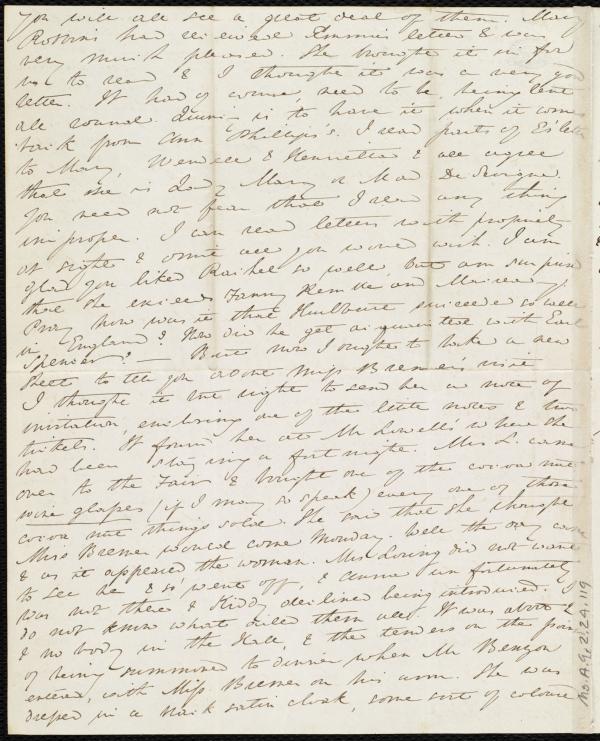 you will all see a great deal of them. Mary
Robbins had received Emmie's letter & was
very much pleased. She brought it in for
us to read & I thought it was a very good
letter. It had of course, need to be, being lent
all round. is to have it when it comes
back from Ann Phillips's. I read parts of E's letter
to Mary, Wendell & Henrietta & all agree
that she is Lady Mary or Mad De Sevigne.
You need not fear that I read any thing
improper. I can read letters with propriety
at sight & omit all you would wish. I am
glad you liked Rachel so well, but am surprised
that she exceeds Fanny Kemble and Macready.
Pray how was it that Hurlburt succeeded so well
in England? How did he get acquainted with Earl
Spencer? — But now I ought to take a new
sheet to tell you about Miss Bremer's visit
I thought it but right to send her a note of
invitation, enclosing one of the little notes & two
tickets. It found her at Mr Lowell's where she
had been staying a fortnight. Mrs L. came
over to the Fair & bought one of the cocoa nut
wine glasses (if I may so speak) every one of those
cocoa nut things sold. She said that she thought
Miss Bremer would come Monday. Well the day came
& as it appeared the woman. Mrs Loring did not want
to see her & so went off, & Anne unfortunately
was not there & declined being introduced. I
do not know what ailed them all. It was about 2
& no body in the Hall, & the tenders on the point
of being summoned to dinner when Mr Benzon
entered, with Miss Bremer on his arm. She was
dressed in a black satin cloak, some sort of colored
Ms.A.9.2.24.119